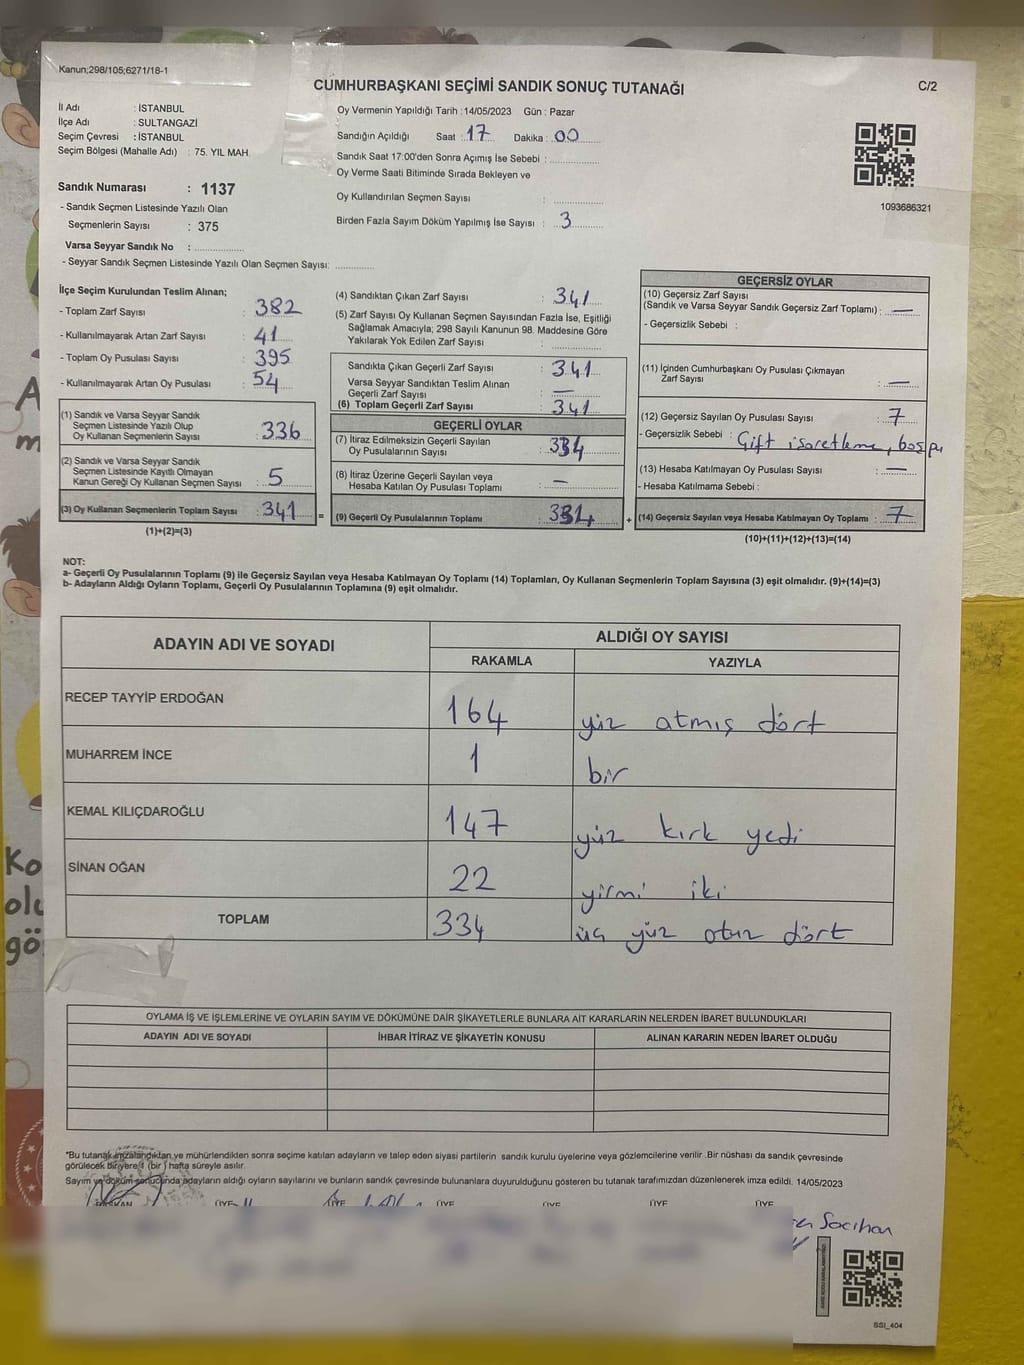 Kanun;298/105;6271/18-1
CUMHURBAŞKANI SEÇİMİ SANDIK SONUÇ TUTANAĞI
C/2
İl Adı : İSTANBUL
İlçe Adı : SULTANGAZİ
Seçim Çevresi : İSTANBUL
Seçim Bölgesi (Mahalle Adı) : 75. YIL MAH.
Sandık Numarası : 1137
- Sandık Seçmen Listesinde Yazılı Olan
Seçmenlerin Sayısı : 375
Varsa Seyyar Sandık No :
- Seyyar Sandık Seçmen Listesinde Yazılı Olan Seçmen Sayısı:
Oy Vermenin Yapıldığı Tarih :14/05/2023 Gün : Pazar
Sandığın Açıldığı Saat : 17 Dakika : 00
Sandık Saat 17:00'den Sonra Açımış İse Sebebi :
Oy Verme Saati Bitiminde Sırada Bekleyen ve
Oy Kullandırılan Seçmen Sayısı :
Birden Fazla Sayım Döküm Yapılmış İse Sayısı : 3
1093686321
İlçe Seçim Kurulundan Teslim Alınan;
- Toplam Zarf Sayısı : 382
- Kullanılmayarak Artan Zarf Sayısı : 41
- Toplam Oy Pusulası Sayısı : 395
- Kullanılmayarak Artan Oy Pusulası : 54
(1) Sandık ve Varsa Seyyar Sandık
Seçmen Listesinde Yazılı Olup
Oy Kullanan Seçmenlerin Sayısı : 336
(2) Sandık ve Varsa Seyyar Sandık
Seçmen Listesinde Kayıtlı Olmayan
Kanun Gereği Oy Kullanan Seçmen Sayısı : 5
(3) Oy Kullanan Seçmenlerin Toplam Sayısı : 341
(1)+(2)=(3)
(4) Sandıktan Çıkan Zarf Sayısı : 341
(5) Zarf Sayısı Oy Kullanan Seçmen Sayısından Fazla İse, Eşitliği
Sağlamak Amacıyla; 298 Sayılı Kanunun 98. Maddesine Göre
Yakılarak Yok Edilen Zarf Sayısı :
Sandıkta Çıkan Geçerli Zarf Sayısı : 341
Varsa Seyyar Sandıktan Teslim Alınan
Geçerli Zarf Sayısı : —
(6) Toplam Geçerli Zarf Sayısı : 341
GEÇERLİ OYLAR
(7) İtiraz Edilmeksizin Geçerli Sayılan
Oy Pusulalarının Sayısı : 334
(8) İtiraz Üzerine Geçerli Sayılan veya
Hesaba Katılan Oy Pusulası Toplamı : —
= (9) Geçerli Oy Pusulalarının Toplamı : 334
GEÇERSİZ OYLAR
(10) Geçersiz Zarf Sayısı
(Sandık ve Varsa Seyyar Sandık Geçersiz Zarf Toplamı) : —
- Geçersizlik Sebebi :
(11) İçinden Cumhurbaşkanı Oy Pusulası Çıkmayan
Zarf Sayısı : —
(12) Geçersiz Sayılan Oy Pusulası Sayısı : 7
- Geçersizlik Sebebi : Çift işaretleme, boş
(13) Hesaba Katılmayan Oy Pusulası Sayısı : —
- Hesaba Katılmama Sebebi :
+ (14) Geçersiz Sayılan veya Hesaba Katılmayan Oy Toplamı : 7
(10)+(11)+(12)+(13)=(14)
NOT:
a- Geçerli Oy Pusulalarının Toplamı (9) ile Geçersiz Sayılan veya Hesaba Katılmayan Oy Toplamı (14) Toplamları, Oy Kullanan Seçmenlerin Toplam Sayısına (3) eşit olmalıdır. (9)+(14)=(3)
b- Adayların Aldığı Oyların Toplamı, Geçerli Oy Pusulalarının Toplamına (9) eşit olmalıdır.
ADAYIN ADI VE SOYADI
ALDIĞI OY SAYISI
RAKAMLA YAZIYLA
RECEP TAYYİP ERDOĞAN 164 yüz atmış dört
MUHARREM İNCE 1 bir
KEMAL KILIÇDAROĞLU 147 yüz kırk yedi
SİNAN OĞAN 22 yirmi iki
TOPLAM 334 üç yüz otuz dört
OYLAMA İŞ VE İŞLEMLERİNE VE OYLARIN SAYIM VE DÖKÜMÜNE DAİR ŞİKAYETLERLE BUNLARA AİT KARARLARIN NELERDEN İBARET BULUNDUKLARI
ADAYIN ADI VE SOYADI İHBAR İTİRAZ VE ŞİKAYETİN KONUSU ALINAN KARARIN NEDEN İBARET OLDUĞU
*Bu tutanak imzalandıktan ve mühürlendikten sonra seçime katılan adayların ve talep eden siyasi partilerin sandık kurulu üyelerine veya gözlemcilerine verilir .Bir nüshası da sandık çevresinde
görülecek bir yere 1 (bir ) hafta süreyle asılır.
Sayım ve döküm sonucunda adayların aldığı oyların sayılarını ve bunların sandık çevresinde bulunanlara duyurulduğunu gösteren bu tutanak tarafımızdan düzenlenerek imza edildi. 14/05/2023
BAŞKAN ÜYE ÜYE ÜYE ÜYE ÜYE ÜYE
SSI_404